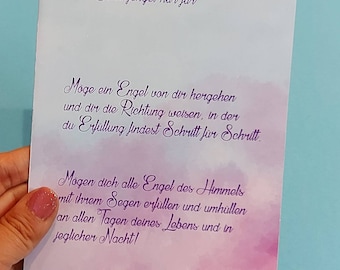 Möge ein Engel von dir hergehen
und dir die Richtung weisen, in der
du Erfüllung findest Schritt für Schritt.
Mögen dich alle Engel des Himmels
mit ihrem Segen erfüllen und umhüllen
an allen Tagen deines Lebens und in
jeglicher Nacht!